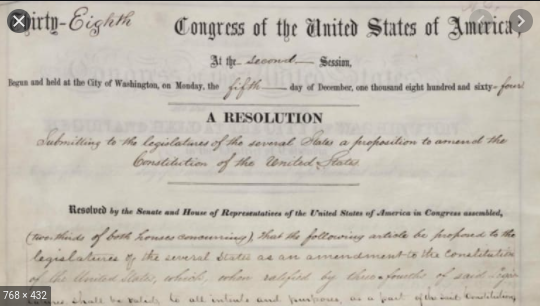 Thirty-Eighth Congress of the United States of America,
At the second Session,
Begun and held at the City of Washington, on Monday, the fifth day of December, one thousand eight hundred and sixty-four
A RESOLUTION
Submitting to the legislatures of the several States a proposition to amend the
Constitution of the United States.
Resolved by the Senate and House of Representatives of the United States of America in Congress assembled,
(two-thirds of both houses concurring), That the following article be proposed to the
legislatures of the several States as an amendment to the Constitution
of the United States, which, when ratified by three-fourths of said Legis
shall be valid, to all intents and purposes, as a part of the said Constitution
768 × 432